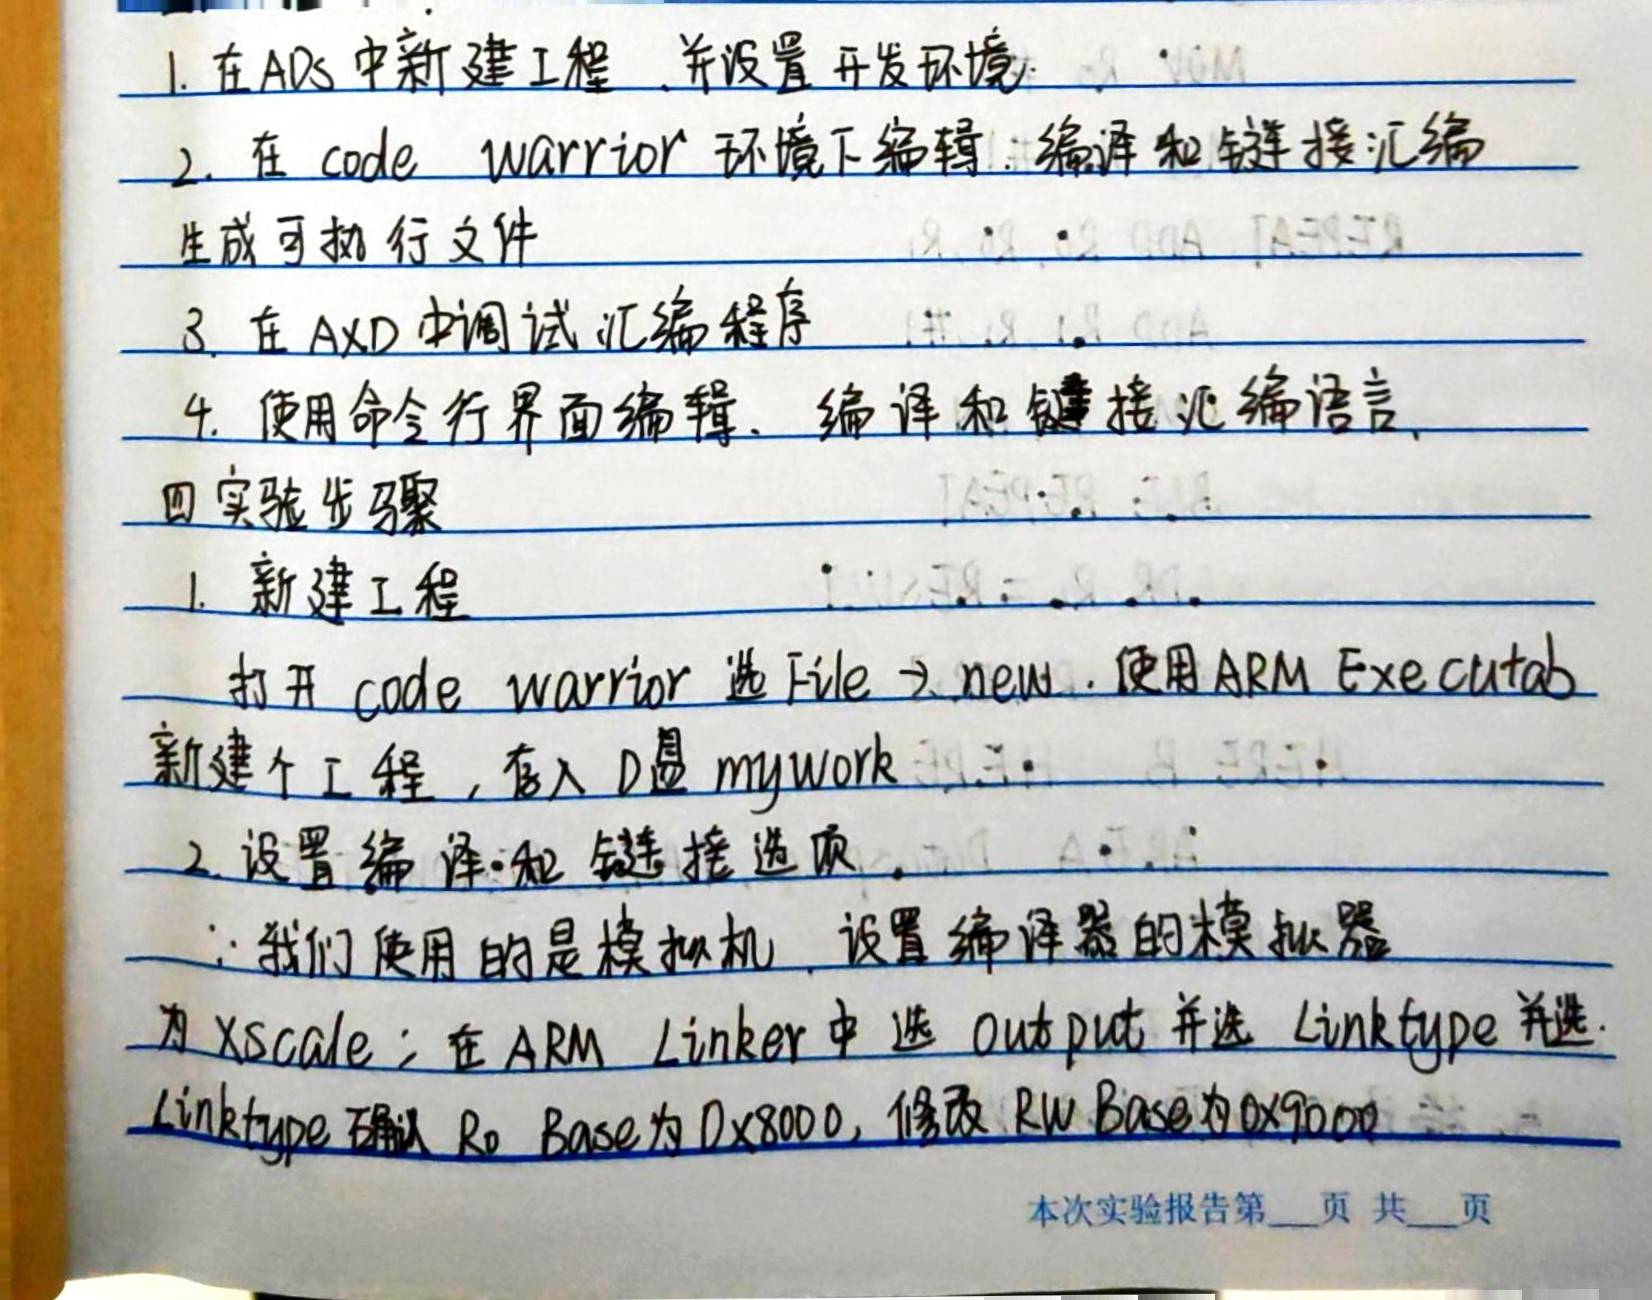 1. 在ADS中新建工程、并设置开发环境
2. 在 code warrior 环境下编辑、编译和链接汇编
生成可执行文件
3. 在AXD中调试汇编程序
4. 使用命令行界面编辑、编译和链接汇编语言、
四 实验步骤
1. 新建工程
打开 code warrior 选File → new. 使用ARM Executab
新建个工程，存入D盘 mywork
2. 设置编译和链接选项.
∵我们使用的是模拟机、设置编译器的模拟器
为 Xscale；在 ARM Linker中选 output 并选 Linktype 并选.
Linktype 确认 Ro Base为0x8000，修改 RW Base为0x9000
本次实验报告第___页 共___页